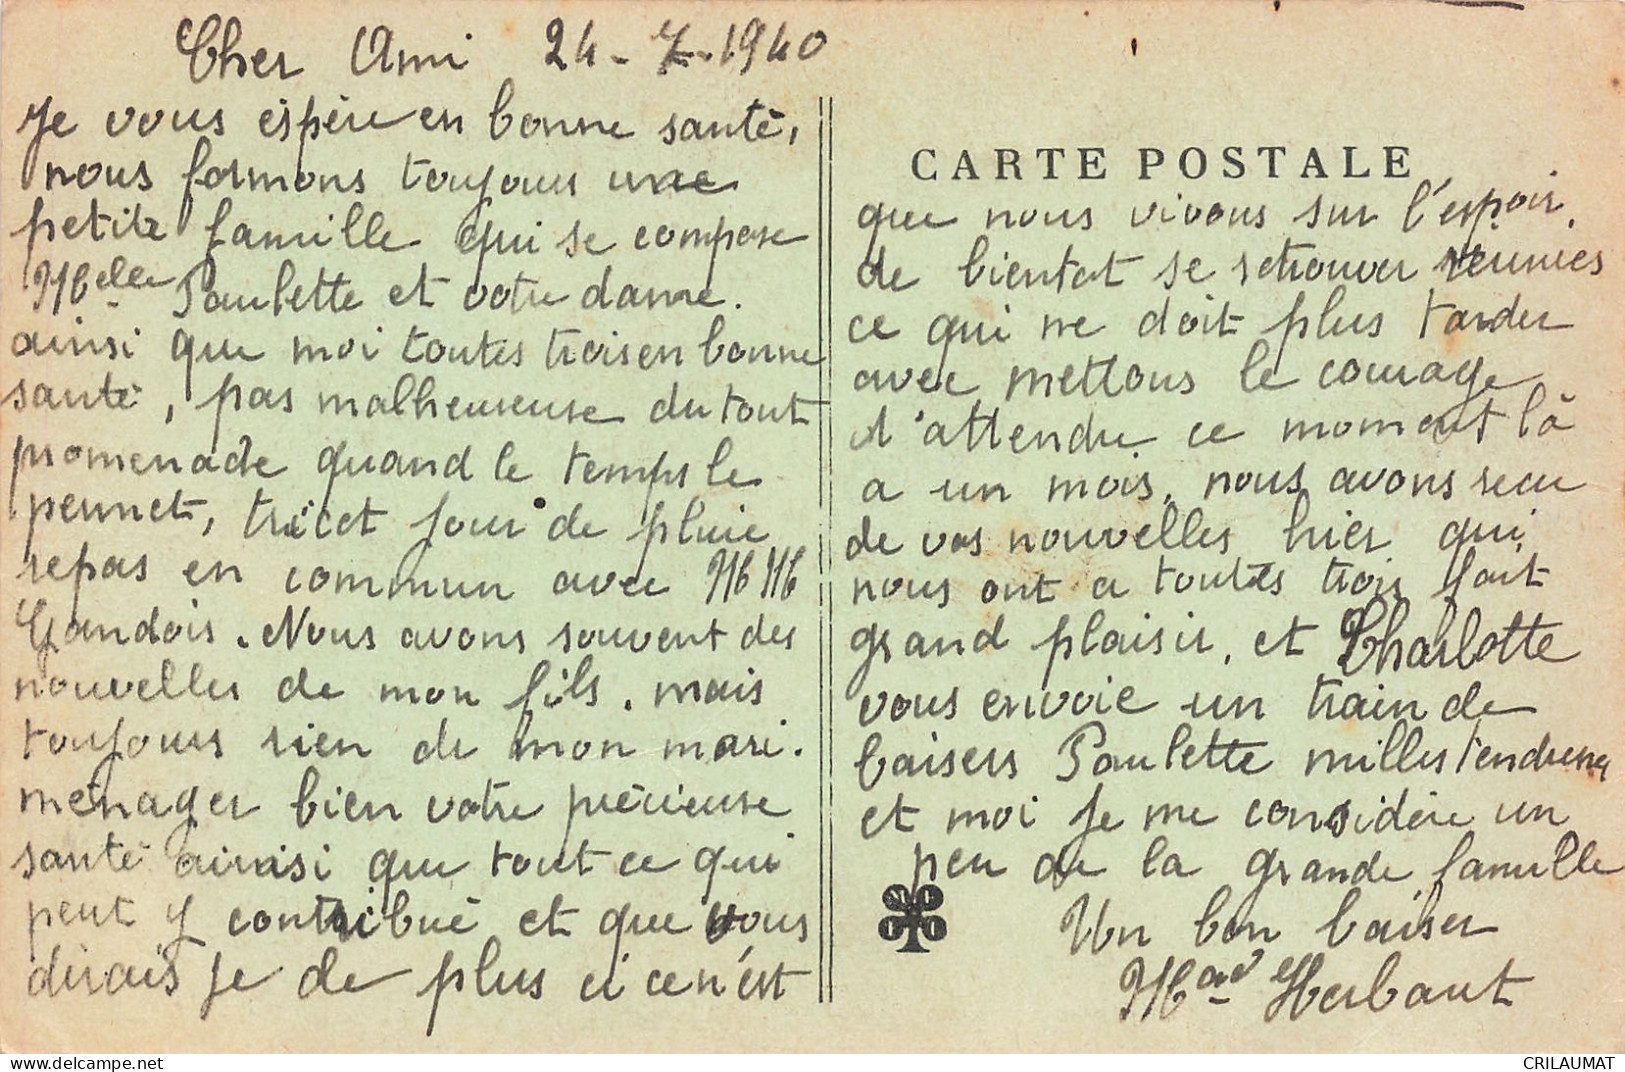 Cher Ami 24-7-1940
Je vous éspère en bonne santé,
nous formons toujours une
petite famille qui se compose
Melle Paulette et votre dame.
ainsi que moi toutes trois en bonne
santé, pas malheureuse du tout
promenade quand le temps le
permet, tricot jour de pluie
repas en commun avec MM
Gandois. Nous avons souvent des
nouvelles de mon fils. mais
toujours rien de mon mari.
ménager bien votre précieuse
santé ainsi que tout ce qui
peut y contribué et que vous
dirais je de plus si ce n'est
CARTE POSTALE
que nous vivons sur l'espoir
de bientot se retrouver réunies
ce qui ne doit plus tarder
avec mettons le courage
d'attendre ce moment là
a un mois, nous avons recu
de vos nouvelles hier qui
nous ont a toutes trois fait
grand plaisir, et Charlotte
vous envoie un train de
baisers Paulette milles tendresses
et moi je me considère un
peu de la grande famille
Un bon baiser
Mad Herbaut
https://www.delcampe.net
CRILAUMAT